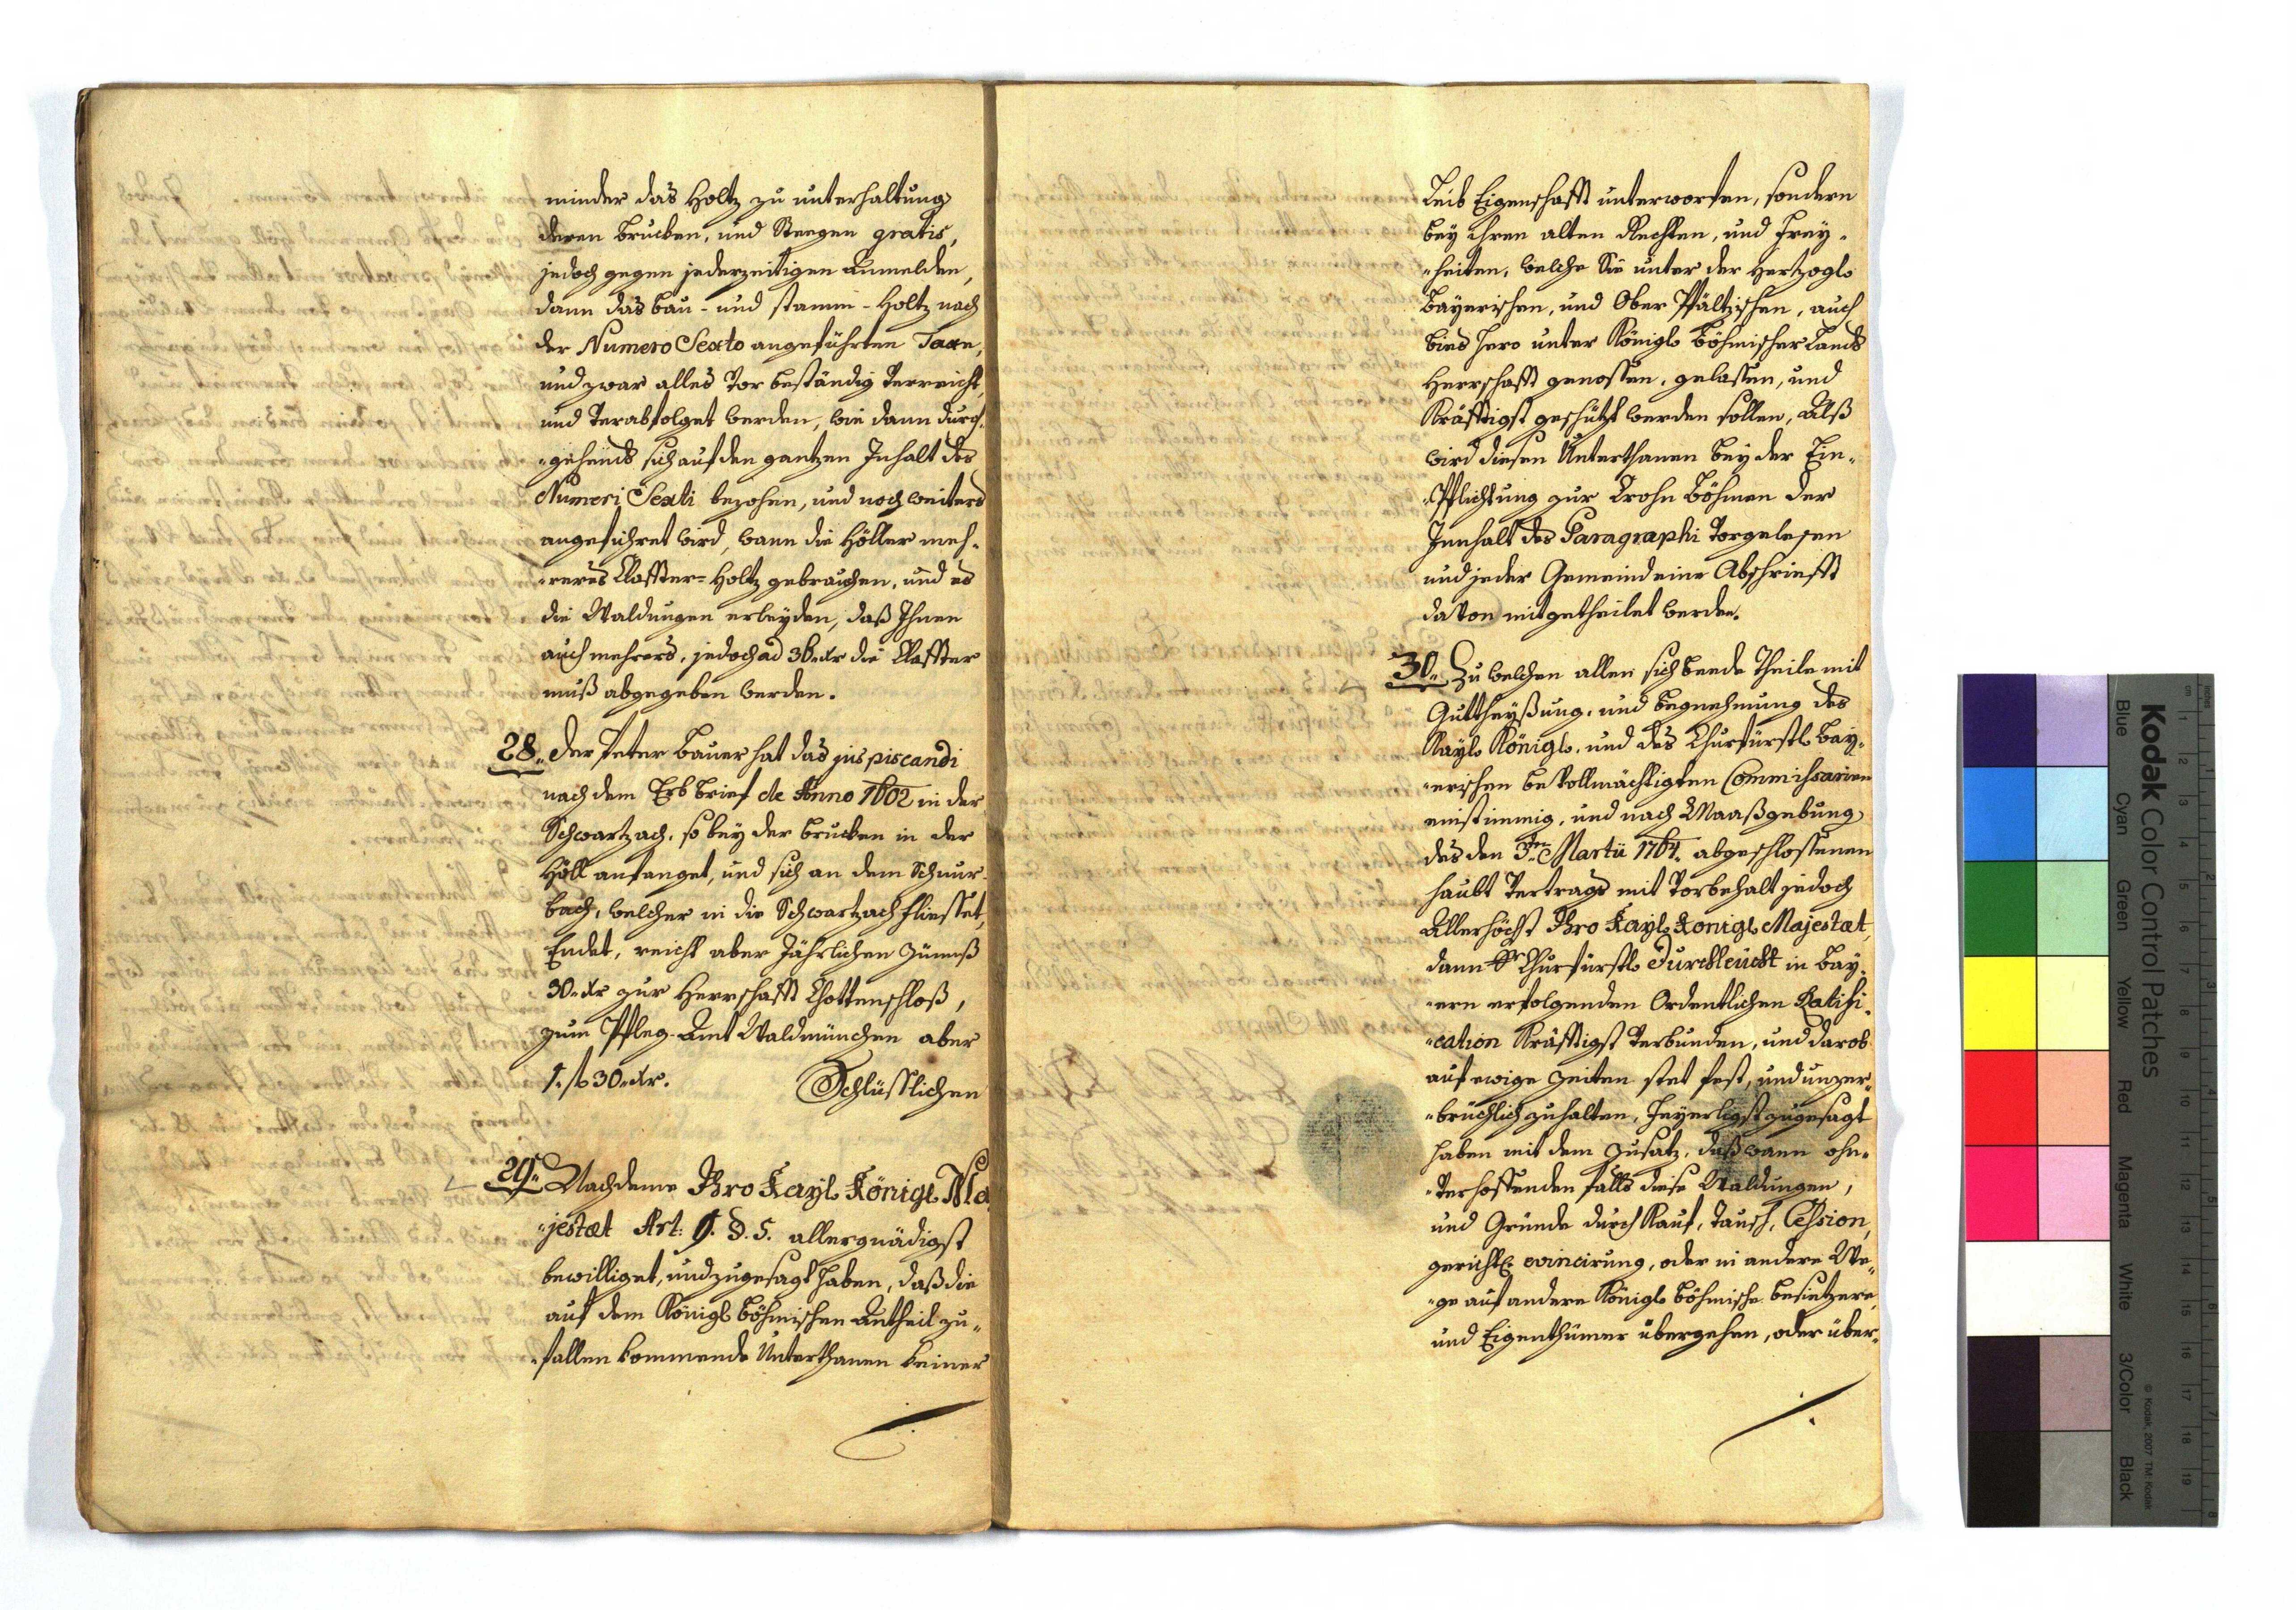 minder das Holtz zu unterhaltung
deren brucken, und Steegen gratis,
jedoch gegen jederzeitigen Anmelden,
dann das bau- und stamm-Holtz nach
der Numero Sexto angeführten Taxe,
und zwar alles vor beständig verreicht,
und verabfolget werden, wie dann durch-
„gehends sich auf den gantzen Inhalt des
Numeri Sexti bezohen, und noch weiters
angeführet wird, wann die Höller meh-
„reres Claffter-Holtz gebrauchen, und es
die Waldungen erleyden, daß Ihnen
auch mehrers, jedoch ad 36„xr die Claffter
muß abgegeben werden.
28„ der Peter Bauer hat das jus piscandi
nach dem Erb brief de Anno 1602 in der
Schwartzach, so bey der brucken in der
Höll anfanget, und sich an dem Schnur-
bach, welcher in die Schwartzach fliesset,
Endet, reicht aber Jährlichen Zünnß
30„xr zur Herrschafft Chottenschloß,
zum Pfleg-Amt Waldmünchen aber
1„f 30„xr.
Schlüsslichen
29„ Nachdeme Ihro Kayl. Königl. Ma
„jestæt Art: 9. §. 5. allergnädigst
bewilliget, und zugesagt haben, daß die
auf dem Königl. böhmischen Antheil zu-
„fallen kommende Unterthanen keiner
Leib Eigenschafft unterworfen, sondern
bey ihren alten Rechten, und Frey-
„heiten, welche Sie unter der Hertzogl.
Bayerischen, und Ober Pfältzischen, auch
bies hero unter Königl. böhmischer Lands
Herrschafft genossen, gelassen, und
Kräfftigst geschützt werden sollen, Alß
wird diesen Unterthanen bey der Ein-
„Pflichtung zur Crohn Böhmen der
Innhalt des Paragraphi vorgelesen
und jeder Gemeind eine Abschriefft
davon mitgetheilet werden.
30„ Zu welchen allen sich beede Theile mit
Guttheyßung, und begnehmung des
Kayl. Königl. und des Churfürstl. Bay-
„erischen bevollmächtigten Commissarien
einstimmig, und nach Maaßgebung
des den 3ten Martii 1764. abgeschlossenen
haubt Vertrags mit Vorbehalt jedoch
Allerhöchst Ihro Kayl. Königl. Majestæt,
dann Sr Churfürstl. Durchleucht in Bay-
„ern erfolgenden Ordentlichen Ratifi-
„cation Kräfftigst verbunden, und darob
auf ewige Zeiten stet fest, und unzer-
„brüchlich zuhalten, Feyerligst zugesagt
haben mit dem Zusatz, daß wann ohn-
„verhoffenden falls diese Waldungen,
und Gründe durch Kauf, Tausch, Cession,
gerichtl. evincirung, oder in andere We-
„ge auf andere Königl. böhmische besietzere,
und Eigenthümer übergehen, oder über-
Kodak Color Control Patches
Blue Cyan Green Yellow Red Magenta White 3/Color Black
© Kodak, 2007 TM: Kodak